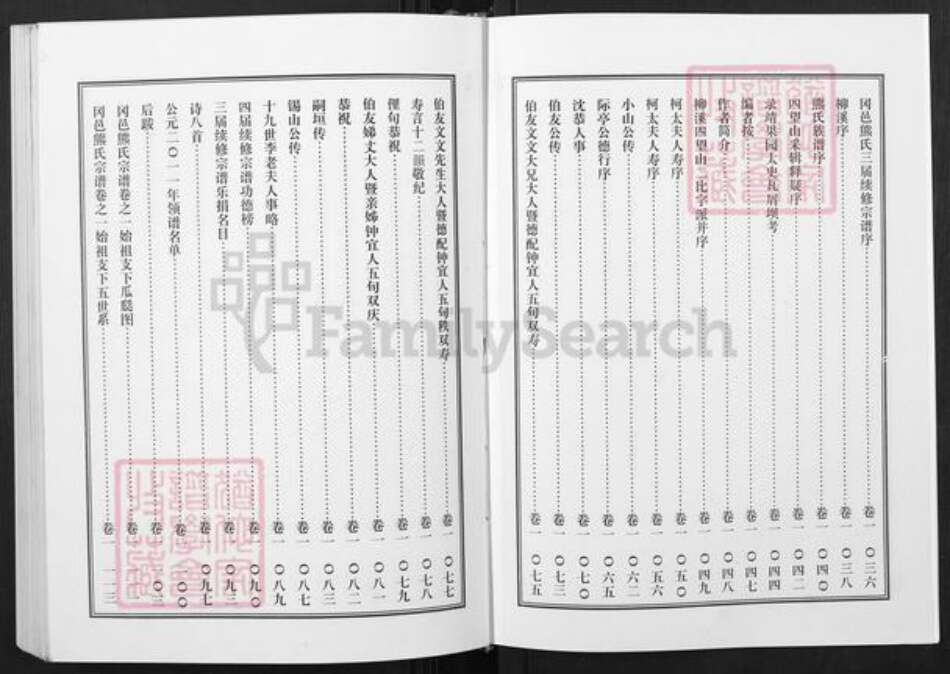 冈邑熊氏三届续修宗谱序 卷一 〇三六
柳溪序 卷一 〇三八
熊氏族谱序 卷一 〇四〇
四望山采辑释疑序 卷一 〇四二
录靖果园太史瓦屑坝考 卷一 〇四四
编者按 卷一 〇四七
作者简介 卷一 〇四八
柳溪四望山二比字派并序 卷一 〇四九
柯太夫人寿序 卷一 〇五〇
柯太夫人寿序 卷一 〇五六
小山公传 卷一 〇六二
际亭公德行序 卷一 〇六五
沈恭人事 卷一 〇七〇
伯友公传 卷一 〇七三
伯友文文大兄大人暨德配钟宜人五旬双寿 卷一 〇七五
伯友文文先生大人暨德配钟宜人五旬秩双寿 卷一 〇七七
寿言十二韻敬纪 卷一 〇七八
俚句恭祝 卷一 〇七九
伯友娣丈大人暨亲姊钟宜人五旬双庆 卷一 〇八一
恭祝 卷一 〇八二
嗣垣传 卷一 〇八三
锡山公传 卷一 〇八七
十九世李老夫人事略 卷一 〇八九
四届续修宗谱功德榜 卷一 〇九〇
三届续修宗谱乐捐名目 卷一 〇九三
诗八首 卷一 〇九七
公元二〇一一年领谱名单 卷一 一〇〇
后跋 卷一 一〇三
冈邑熊氏宗谱卷之一始祖支下瓜瓞图 卷一
冈邑熊氏宗谱卷之一始祖支下五世系 卷一 一一三
FamilySearch